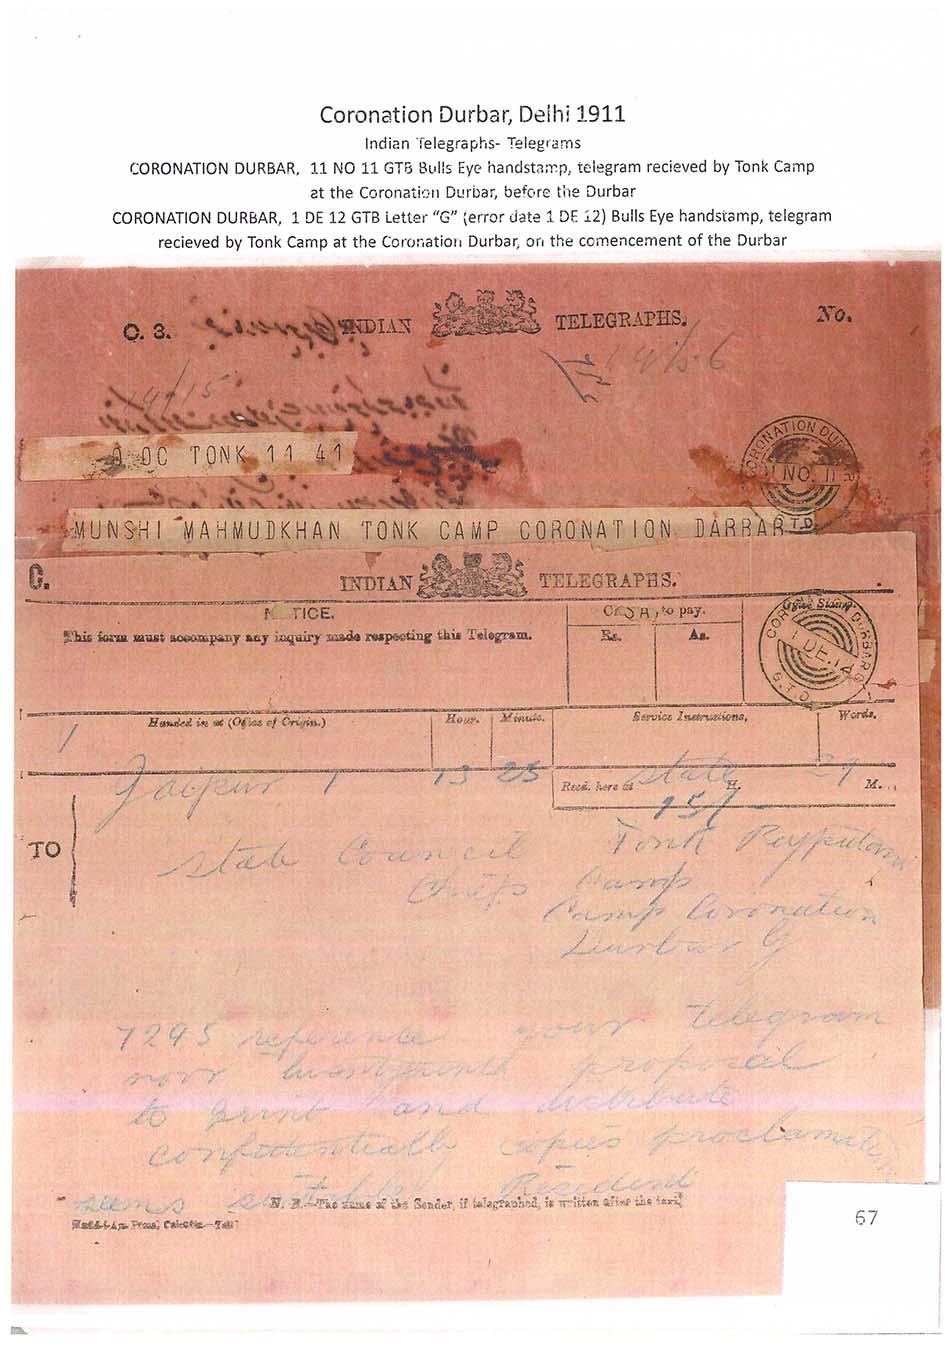 Coronation Durbar, Delhi 1911
Indian Telegraphs- Telegrams
CORONATION DURBAR, 11 NO 11 GTB Bulls Eye handstamp, telegram recieved by Tonk Camp
at the Coronation Durbar, before the Durbar
CORONATION DURBAR, 1 DE 12 GTB Letter "G" (error date 1 DE 12) Bulls Eye handstamp, telegram
recieved by Tonk Camp at the Coronation Durbar, on the comencement of the Durbar
C. 3. INDIAN TELEGRAPHS. No.
OC TONK 11 41
CORONATION DUR
NO. 11
T.D.
MUNSHI MAHMUDKHAN TONK CAMP CORONATION DARBAR
C. INDIAN TELEGRAPHS.
NOTICE.
This form must accompany any inquiry made respecting this Telegram.
to pay.
Rs. As.
Office Stamp.
DURBAR G
1 DE. 12
G.T.D.
Handed in at (Office of Origin.) Hour. Minute. Service Instructions. Words.
Jaipur 1 13 25 State 29
Recd. here at H. M.
TO
State Council Tonk Rajputana
Chiefs Camp
Camp Coronation
Durbar G
7295 reference your telegram
proposal
to print and distribute
confidentially copies proclamation
seems suitable Resident
N. B.—The name of the Sender, if telegraphed, is written after the text.
67